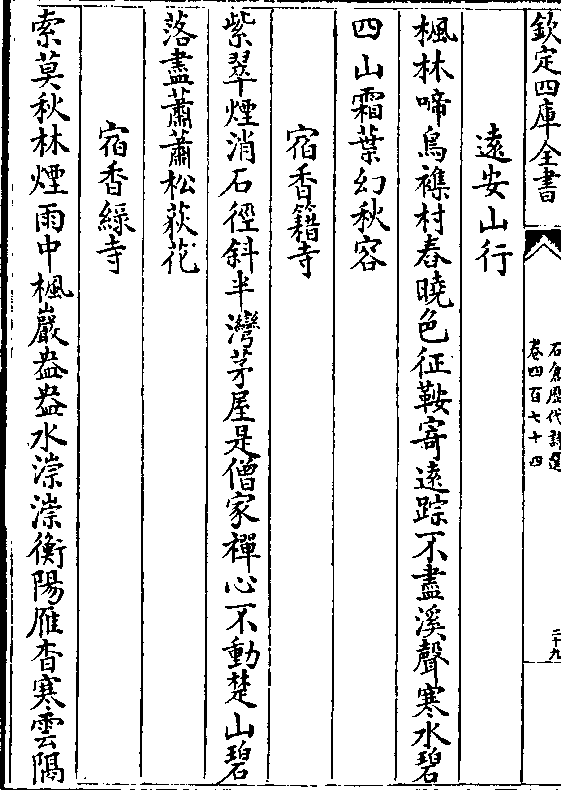 欽定四庫全書
石倉歷代詩選
卷四百七十四
二十九
遠安山行
楓林啼鳥襍村舂曉色征鞍寄遠踪不盡溪聲寒水碧
四山霜葉幻秋容
宿香籍寺
紫翠煙消石徑斜半灣茅屋是僧家禪心不動楚山碧
落盡蕭蕭松荻花
宿香緑寺
索莫秋林煙雨中楓巖盎盎水淙淙衡陽雁杳寒雲隔